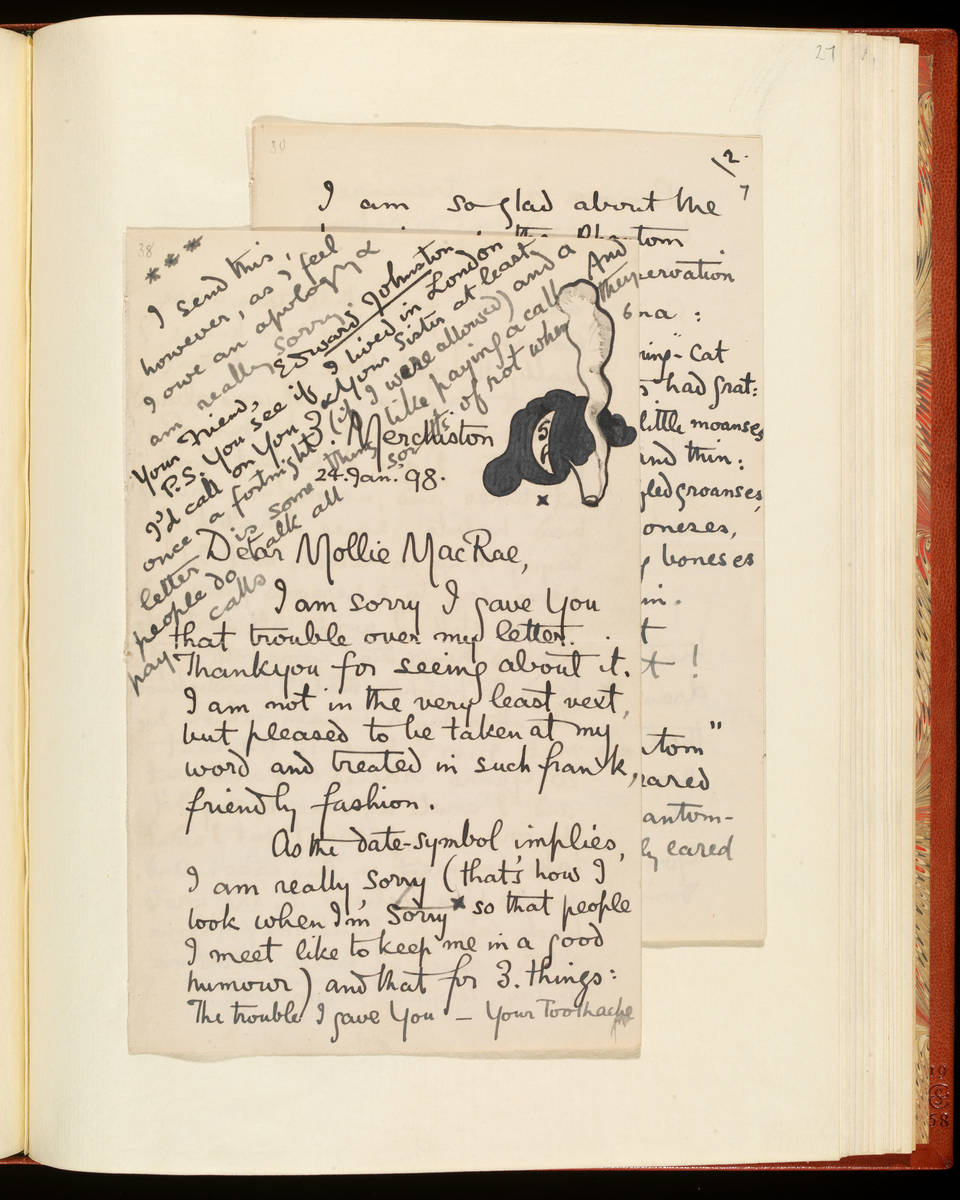 27
30
12.
7
I am so glad about the
the Phantom
pervation
ena :
ning"-Cat
s had grat:
little moanses
and thin:
gled groanses,
oneses,
g boneses
in.
t
t !
tom"
eared
antom-
ly eared
38
* * *
I send this,
however, as I feel
I owe an apology &
am really sorry.
Your Friend,
Edward Johnston
P.S. You see if I lived in London
I'd call on You & Your Sister at least
once a fortnight (if I were allowed) and a
letter is something like paying a call. And
people do talk all sorts of rot when they
pay calls
3. Merchiston
24. Jan. 98.
x
Dear Mollie MacRae,
I am sorry I gave You
that trouble over my letter.
Thankyou for seeing about it.
I am not in the very least vext,
but pleased to be taken at my
word and treated in such frank,
friendly fashion.
As the date-symbol implies,
I am really sorry (that's how I
look when I'm sorry x so that people
I meet like to keep me in a good
humour) and that for 3. things:
The trouble I gave You — Your Toothache
19
CS
58